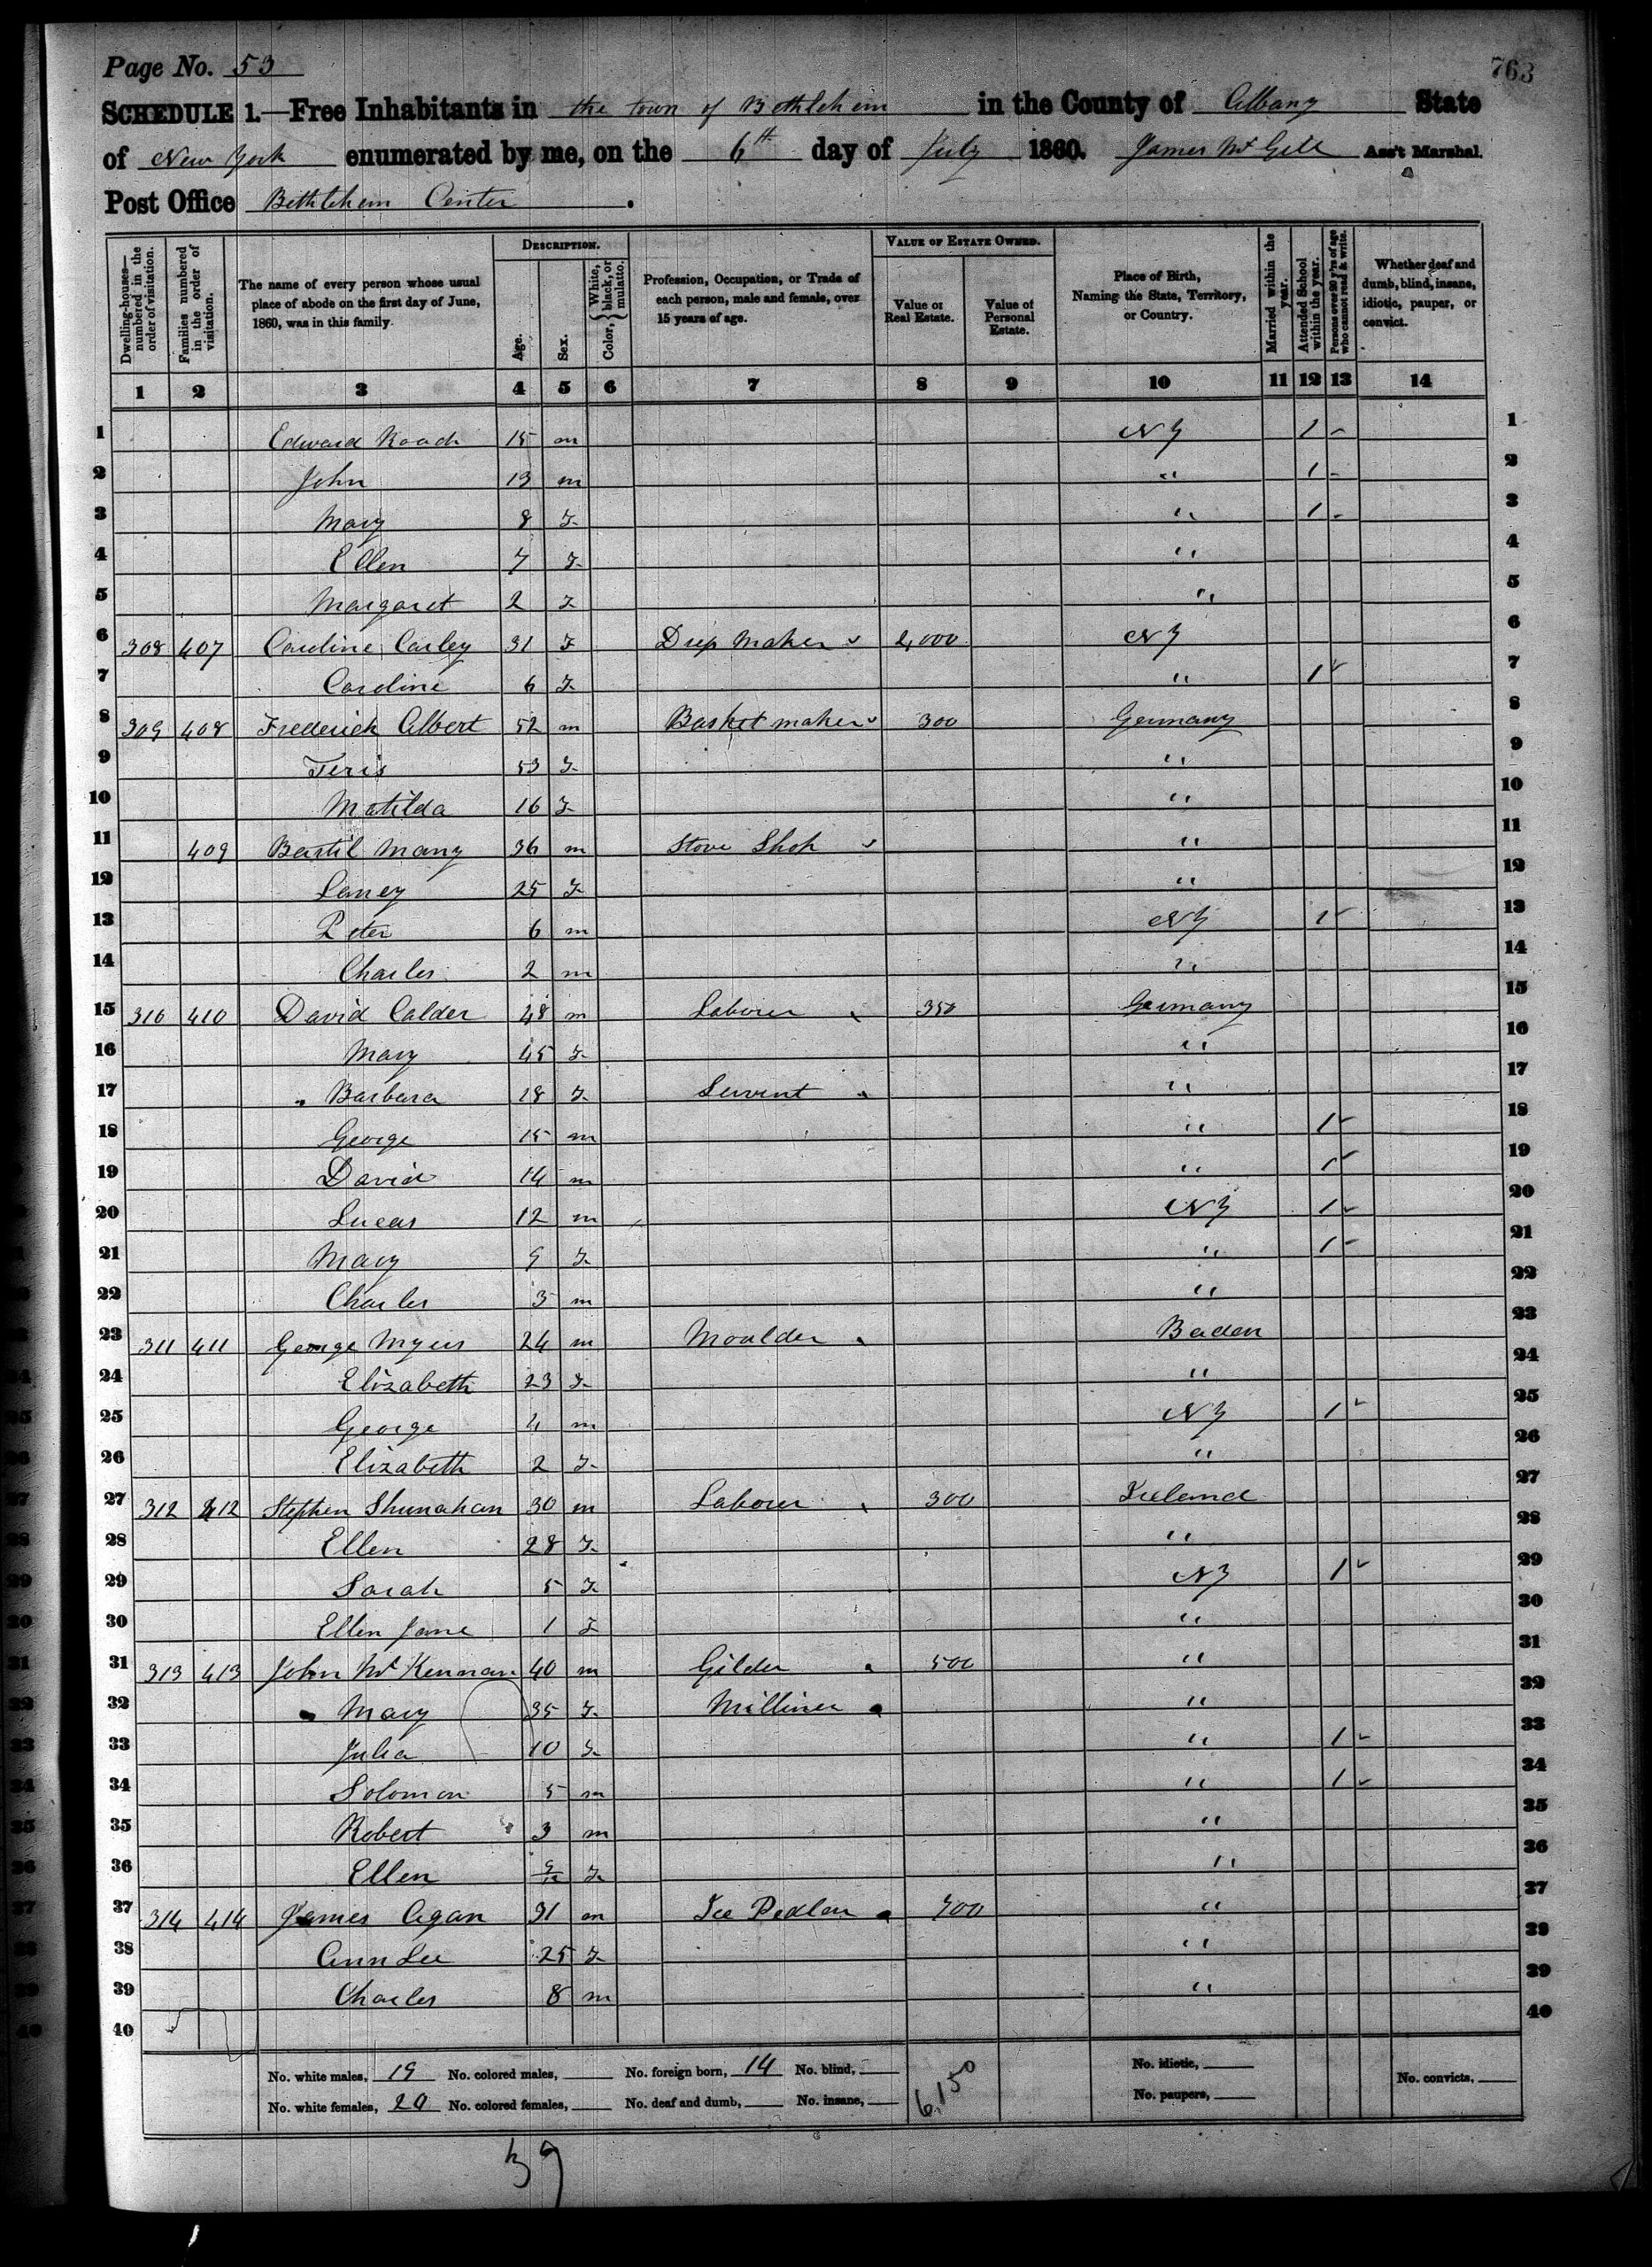 Page No. 53
763
SCHEDULE 1.—Free Inhabitants in the town of Bethlehem in the County of Albany State
of New York enumerated by me, on the 6th day of July 1860. James McGill Ass't Marshal.
Post Office Bethlehem Center.
Dwelling-houses—numbered in the order of visitation.
Families numbered in the order of visitation.
The name of every person whose usual place of abode on the first day of June, 1860, was in this family.
DESCRIPTION.
Age.
Sex.
Color, { White, black, or mulatto.
Profession, Occupation, or Trade of each person, male and female, over 15 years of age.
VALUE OF ESTATE OWNED.
Value of Real Estate.
Value of Personal Estate.
Place of Birth, Naming the State, Territory, or Country.
Married within the year.
Attended School within the year.
Persons over 20 y'rs of age who cannot read & write.
Whether deaf and dumb, blind, insane, idiotic, pauper, or convict.
1 2 3 4 5 6 7 8 9 10 11 12 13 14
1 Edward Roach 15 m NY 1 1
2 John 13 m " 1 2
3 Mary 8 F " 1 3
4 Ellen 7 F " 4
5 Margaret 2 F " 5
6 308 407 Caroline Carley 31 F Drep Maker 2,000 NY 6
7 Caroline 6 F " 1 7
8 309 408 Frederick Albert 52 m Basket maker 300 Germany 8
9 Feris 53 F " 9
10 Matilda 16 F " 10
11 409 Bastil Many 36 m Stove Shop " 11
12 Laney 25 F " 12
13 Peter 6 m NY 1 13
14 Charles 2 m " 14
15 310 410 David Calder 48 m Laborer 350 Germany 15
16 Mary 45 F " 16
17 Barbara 18 F Servent " 17
18 George 15 m " 1 18
19 David 14 m " 1 19
20 Lucas 12 m NY 1 20
21 Mary 9 F " 1 21
22 Charles 3 m " 22
23 311 411 George Myers 24 m Moulder Baden 23
24 Elizabeth 23 F " 24
25 George 4 m NY 1 25
26 Elizabeth 2 F " 26
27 312 412 Stephen Shunahan 30 m Laborer 300 Ireland 27
28 Ellen 28 F " 28
29 Sarah 5 F NY 1 29
30 Ellen Jane 1 F " 30
31 313 413 John McKennan 40 m Gilder 500 " 31
32 Mary 35 F Milliner " 32
33 Julia 10 F " 1 33
34 Solomon 5 m " 1 34
35 Robert 3 m " 35
36 Ellen 9/12 F " 36
37 314 414 James Agan 31 m Ice Pedlar 700 " 37
38 Ann Lee 25 F " 38
39 Charles 8 m " 39
40 40
No. white males, 19 No. colored males, No. foreign born, 14 No. blind, No. idiotic, No. convicts,
No. white females, 20 No. colored females, No. deaf and dumb, No. insane, 6,150 No. paupers,
39